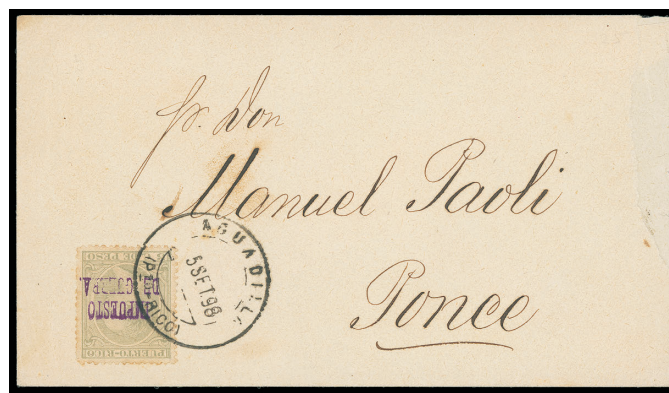 Sr. Don
Manuel Paoli
Ponce
AGUADILLA
5 SET. 98
(P. RICO)
IMPUESTO
DE GUERRA.
PUERTO-RICO
DE PESO